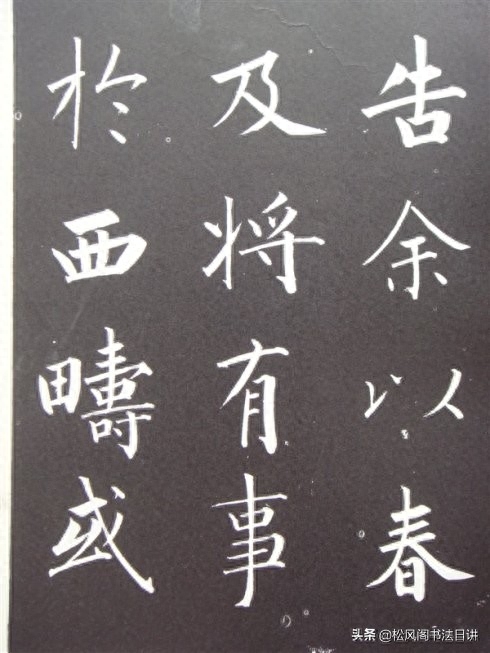 告余以春
及将有事
於西疇或
头条 @松风阁书法日讲